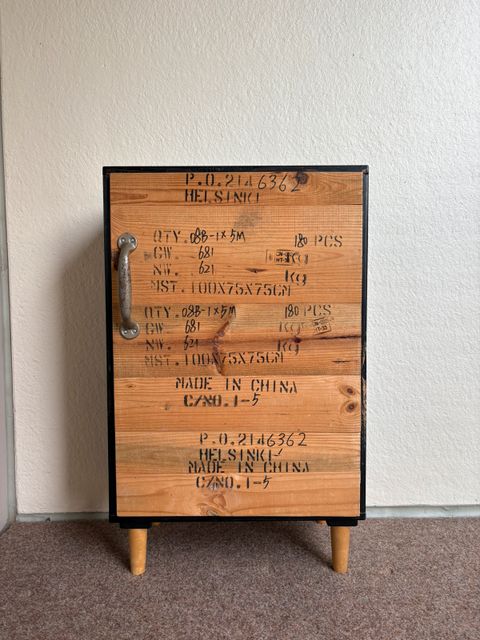 P.O.2146362
HELSINKI
QTY. 08B-1x5M 180 PCS
GW. 681 KG
NW. 621 KG
MST. 100X75X75CM
QTY. 08B-1x5M 180 PCS
GW. 681 KG
NW. 621 KG
MST. 100X75X75CM
MADE IN CHINA
C/NO.1-5
P.O.2146362
HELSINKI
MADE IN CHINA
C/NO.1-5